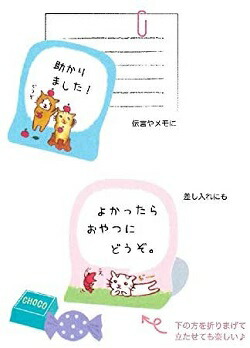 助かり
ました！
どうぞ
伝言やメモに
差し入れにも
よかったら
おやつに
どうぞ。
CHOCO
下の方を折りまげて
立たせても楽しい♪